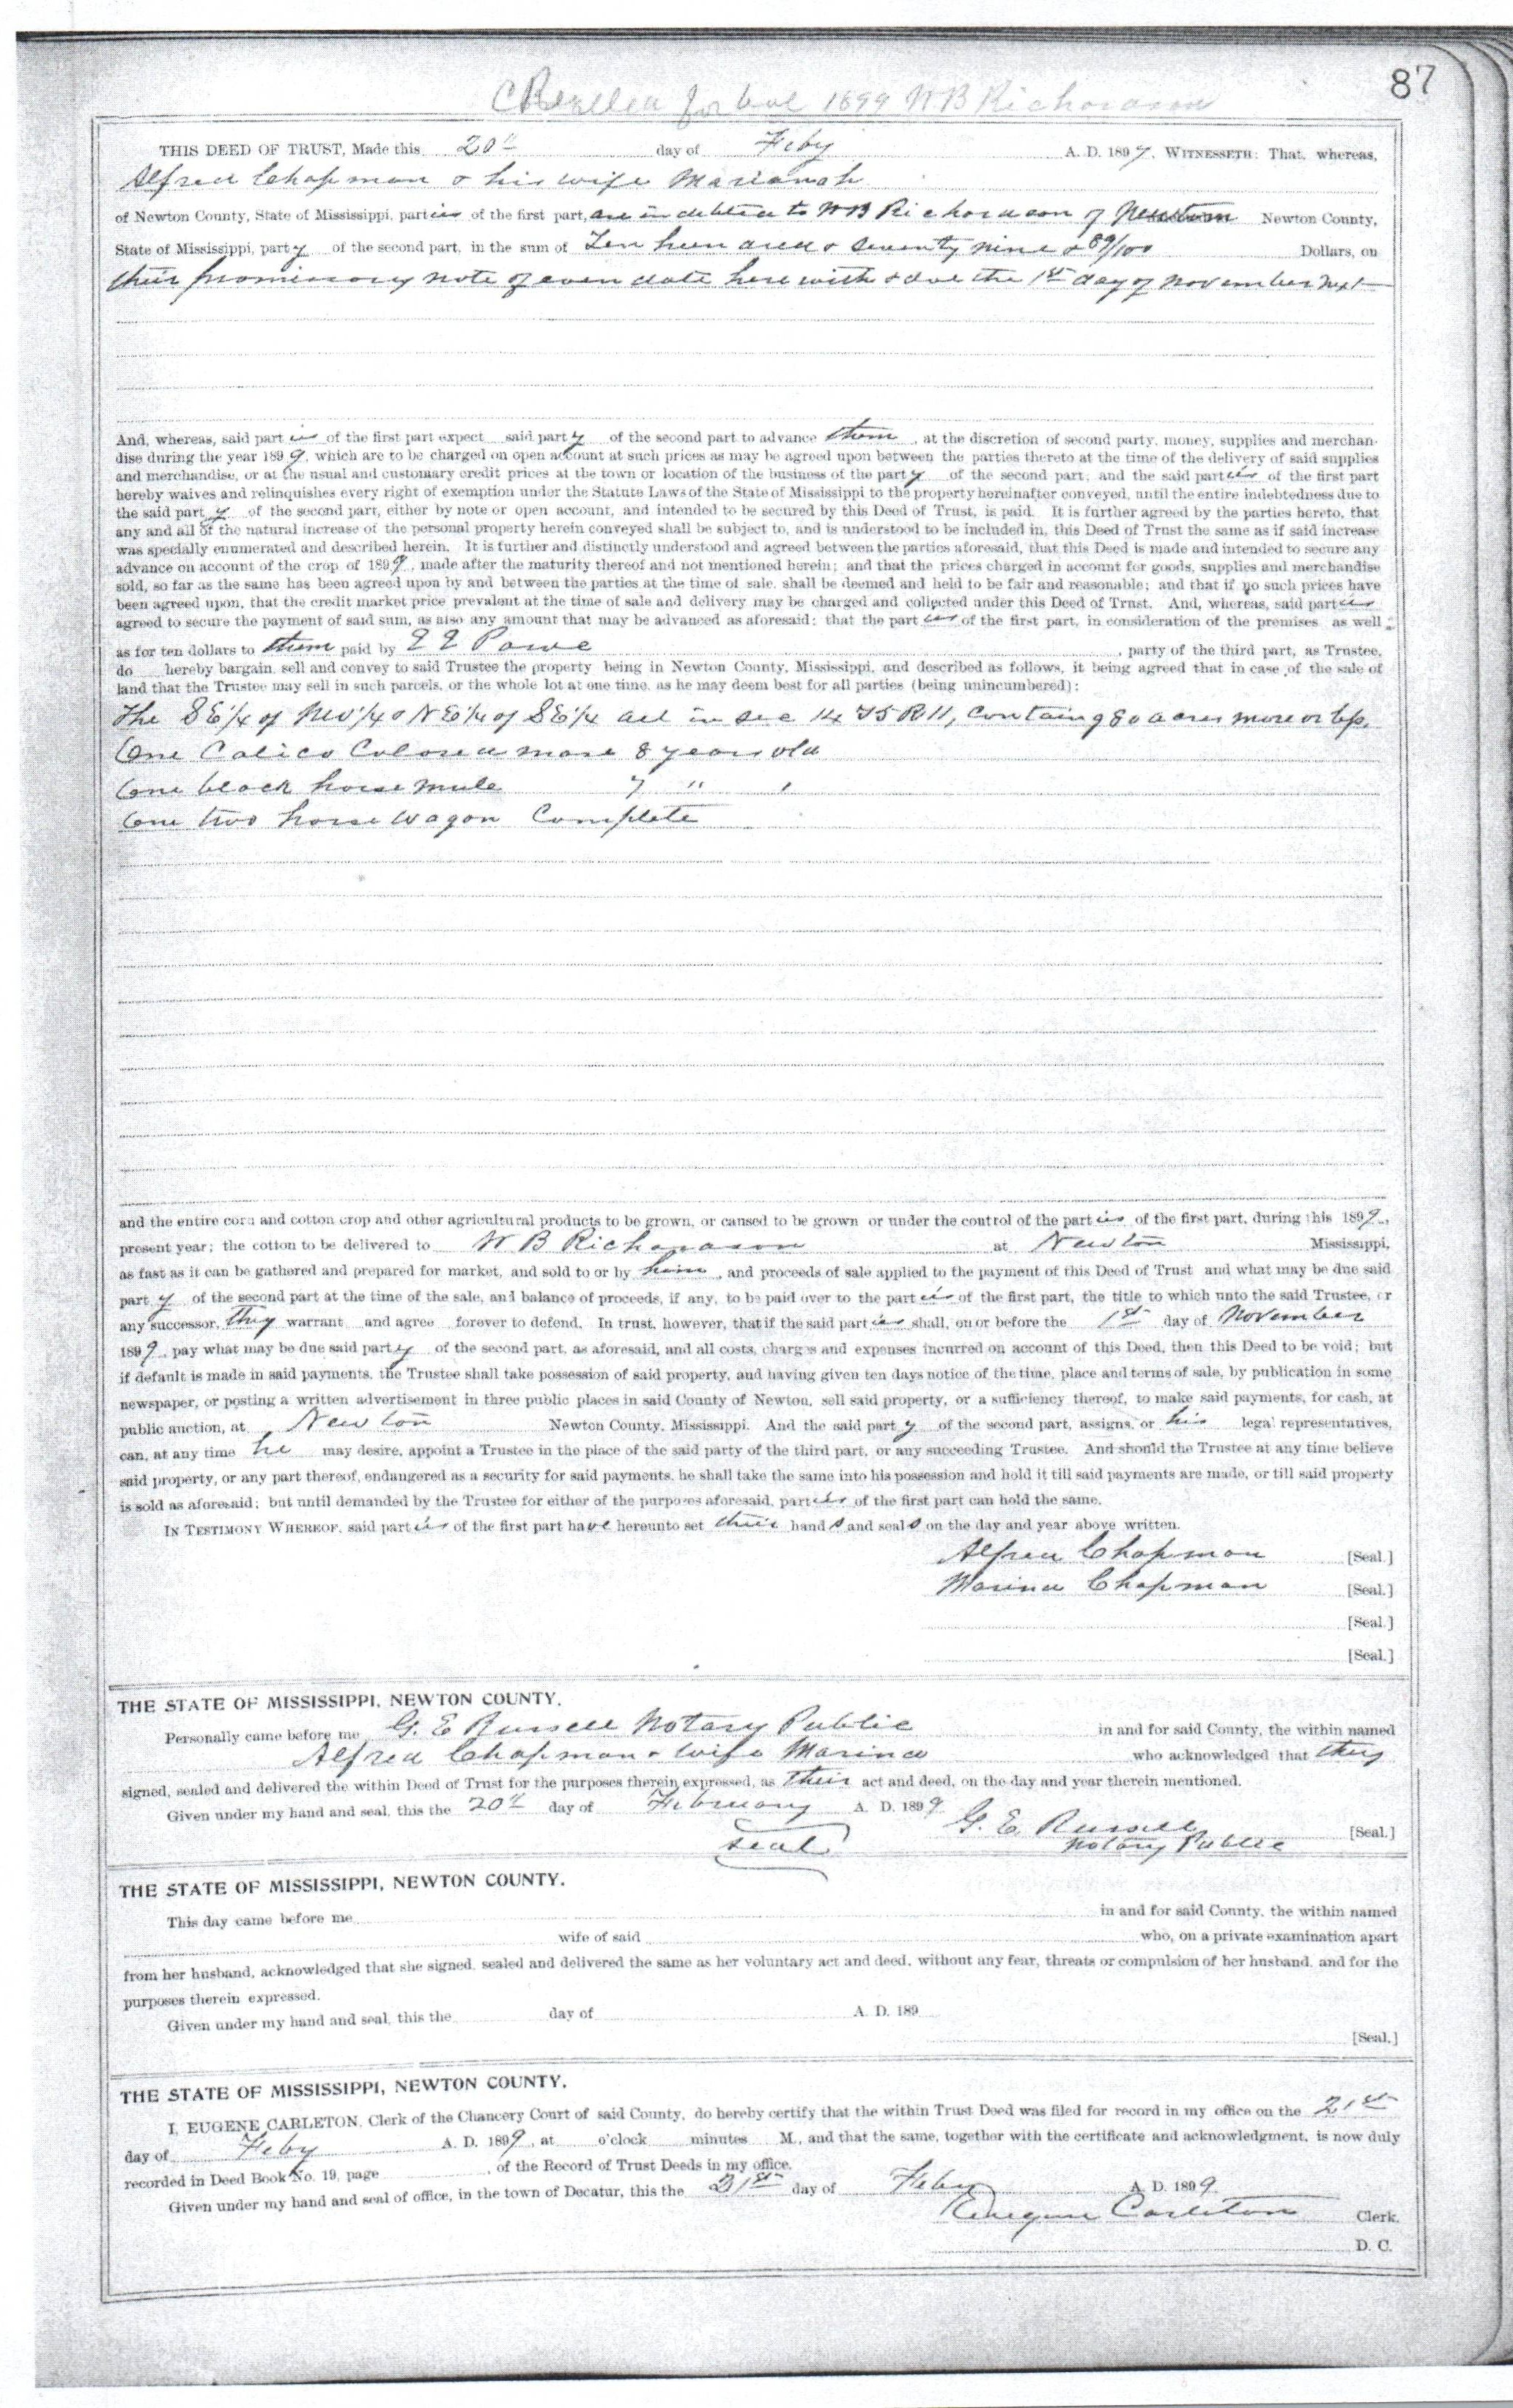 87
for bal 1899 W B Richardson
THIS DEED OF TRUST, Made this 20th day of Feby A. D. 1899, WITNESSETH: That, whereas,
Alfred Chapman & his wife Marianah
of Newton County, State of Mississippi, parties of the first part, are indebted to W B Richardson of Newton Newton County,
State of Mississippi, party of the second part, in the sum of Ten hundred & seventy nine & 89/100 Dollars, on
their promissory note of even date here with & due the 1st day of November next
And, whereas, said parties of the first part expect said party of the second part to advance them, at the discretion of second party, money, supplies and merchan-
dise during the year 1899, which are to be charged on open account at such prices as may be agreed upon between the parties thereto at the time of the delivery of said supplies
and merchandise, or at the usual and customary credit prices at the town or location of the business of the party of the second part; and the said parties of the first part
hereby waives and relinquishes every right of exemption under the Statute Laws of the State of Mississippi to the property hereinafter conveyed, until the entire indebtedness due to
the said party of the second part, either by note or open account, and intended to be secured by this Deed of Trust, is paid. It is further agreed by the parties hereto, that
any and all of the natural increase of the personal property herein conveyed shall be subject to, and is understood to be included in, this Deed of Trust the same as if said increase
was specially enumerated and described herein. It is further and distinctly understood and agreed between the parties aforesaid, that this Deed is made and intended to secure any
advance on account of the crop of 1899, made after the maturity thereof and not mentioned herein; and that the prices charged in account for goods, supplies and merchandise
sold, so far as the same has been agreed upon by and between the parties at the time of sale, shall be deemed and held to be fair and reasonable; and that if no such prices have
been agreed upon, that the credit market price prevalent at the time of sale and delivery may be charged and collected under this Deed of Trust. And, whereas, said parties
agreed to secure the payment of said sum, as also any amount that may be advanced as aforesaid; that the parties of the first part, in consideration of the premises as well
as for ten dollars to them paid by E E Powe, party of the third part, as Trustee,
do hereby bargain, sell and convey to said Trustee the property being in Newton County, Mississippi, and described as follows, it being agreed that in case of the sale of
land that the Trustee may sell in such parcels, or the whole lot at one time, as he may deem best for all parties (being unincumbered):
The SE 1/4 of NW 1/4 & NE 1/4 of SE 1/4 all in sec 14 T5 R11, containg 80 acres more or less.
One Calico Colored mare 8 years old
One black horse mule 7 " "
One two horse wagon Complete
and the entire corn and cotton crop and other agricultural products to be grown, or caused to be grown or under the control of the parties of the first part, during this 1899,
present year; the cotton to be delivered to W B Richardson at Newton Mississippi,
as fast as it can be gathered and prepared for market, and sold to or by him, and proceeds of sale applied to the payment of this Deed of Trust and what may be due said
party of the second part at the time of the sale, and balance of proceeds, if any, to be paid over to the parties of the first part, the title to which unto the said Trustee, or
any successor, they warrant and agree forever to defend. In trust, however, that if the said parties shall, on or before the 1st day of November
1899, pay what may be due said party of the second part, as aforesaid, and all costs, charges and expenses incurred on account of this Deed, then this Deed to be void; but
if default is made in said payments, the Trustee shall take possession of said property, and having given ten days notice of the time, place and terms of sale, by publication in some
newspaper, or posting a written advertisement in three public places in said County of Newton, sell said property, or a sufficiency thereof, to make said payments, for cash, at
public auction, at Newton Newton County, Mississippi. And the said party of the second part, assigns, or his legal representatives,
can, at any time he may desire, appoint a Trustee in the place of the said party of the third part, or any succeeding Trustee. And should the Trustee at any time believe
said property, or any part thereof, endangered as a security for said payments, he shall take the same into his possession and hold it till said payments are made, or till said property
is sold as aforesaid; but until demanded by the Trustee for either of the purposes aforesaid, parties of the first part can hold the same.
IN TESTIMONY WHEREOF, said parties of the first part have hereunto set their hands and seals on the day and year above written.
Alfred Chapman [Seal.]
Marina Chapman [Seal.]
[Seal.]
[Seal.]
THE STATE OF MISSISSIPPI, NEWTON COUNTY.
Personally came before me G. E Russell Notary Public in and for said County, the within named
Alfred Chapman & wife Marina who acknowledged that they
signed, sealed and delivered the within Deed of Trust for the purposes therein expressed, as their act and deed, on the day and year therein mentioned.
Given under my hand and seal, this the 20th day of February A. D. 1899
G. E. Russell [Seal.]
seal Notary Public
THE STATE OF MISSISSIPPI, NEWTON COUNTY.
This day came before me in and for said County, the within named
wife of said who, on a private examination apart
from her husband, acknowledged that she signed, sealed and delivered the same as her voluntary act and deed, without any fear, threats or compulsion of her husband, and for the
purposes therein expressed.
Given under my hand and seal, this the day of A. D. 189
[Seal.]
THE STATE OF MISSISSIPPI, NEWTON COUNTY.
I, EUGENE CARLETON, Clerk of the Chancery Court of said County, do hereby certify that the within Trust Deed was filed for record in my office on the 21st
day of Feby A. D. 1899, at o'clock minutes M., and that the same, together with the certificate and acknowledgment, is now duly
recorded in Deed Book No. 19, page , of the Record of Trust Deeds in my office.
Given under my hand and seal of office, in the town of Decatur, this the 21st day of Feby A. D. 1899
Eugene Carleton Clerk.
D. C.